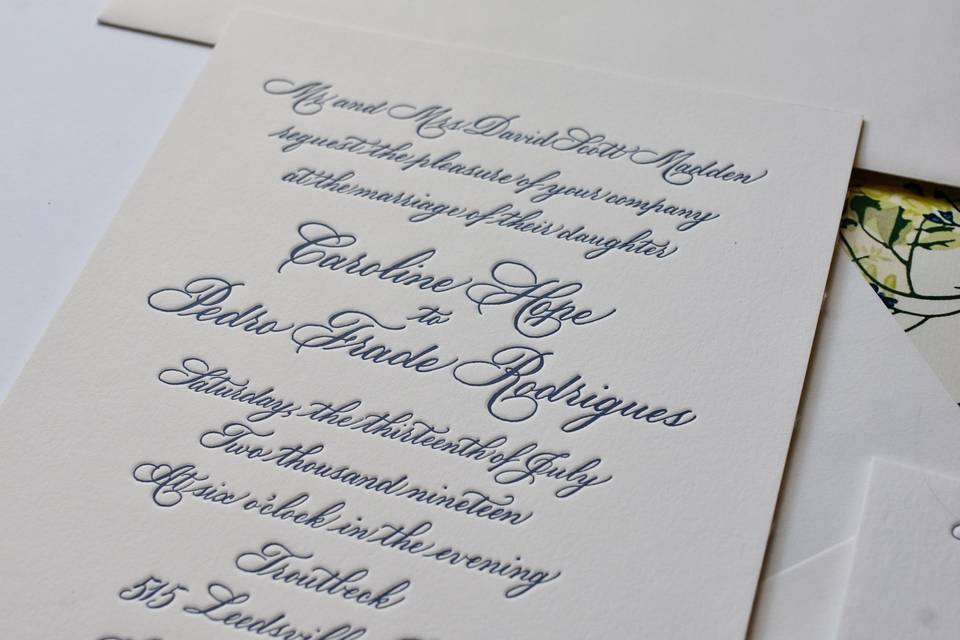 Mr. and Mrs. David Scott Madden
request the pleasure of your company
at the marriage of their daughter
Caroline Hope
to
Pedro Frade Rodrigues
Saturday, the thirteenth of July
Two thousand nineteen
At six o'clock in the evening
Troutbeck
515